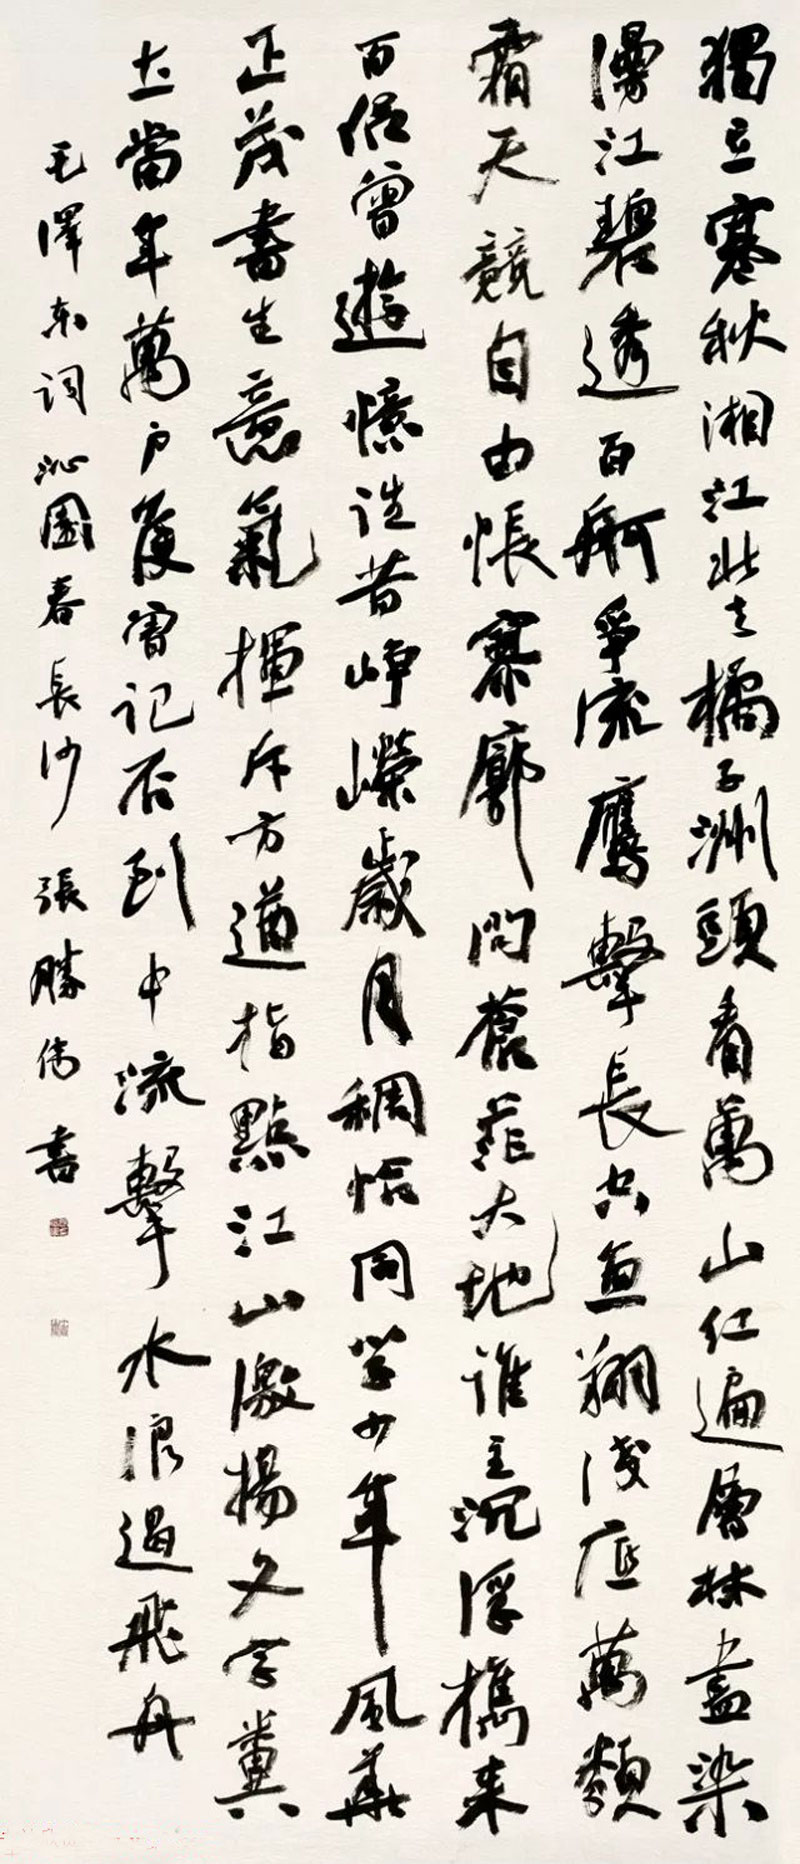 獨立寒秋湘江北去橘子洲頭看萬山紅遍層林盡染
漫江碧透百舸爭流鷹擊長空魚翔淺底萬類
霜天競自由悵寥廓問蒼茫大地誰主沉浮攜來
百侶曾遊憶往昔崢嶸歲月稠恰同學少年風華
正茂書生意氣揮斥方遒指點江山激揚文字糞
土當年萬户侯曾記否到中流擊水浪遏飛舟
毛澤東詞沁園春長沙 張勝偉書